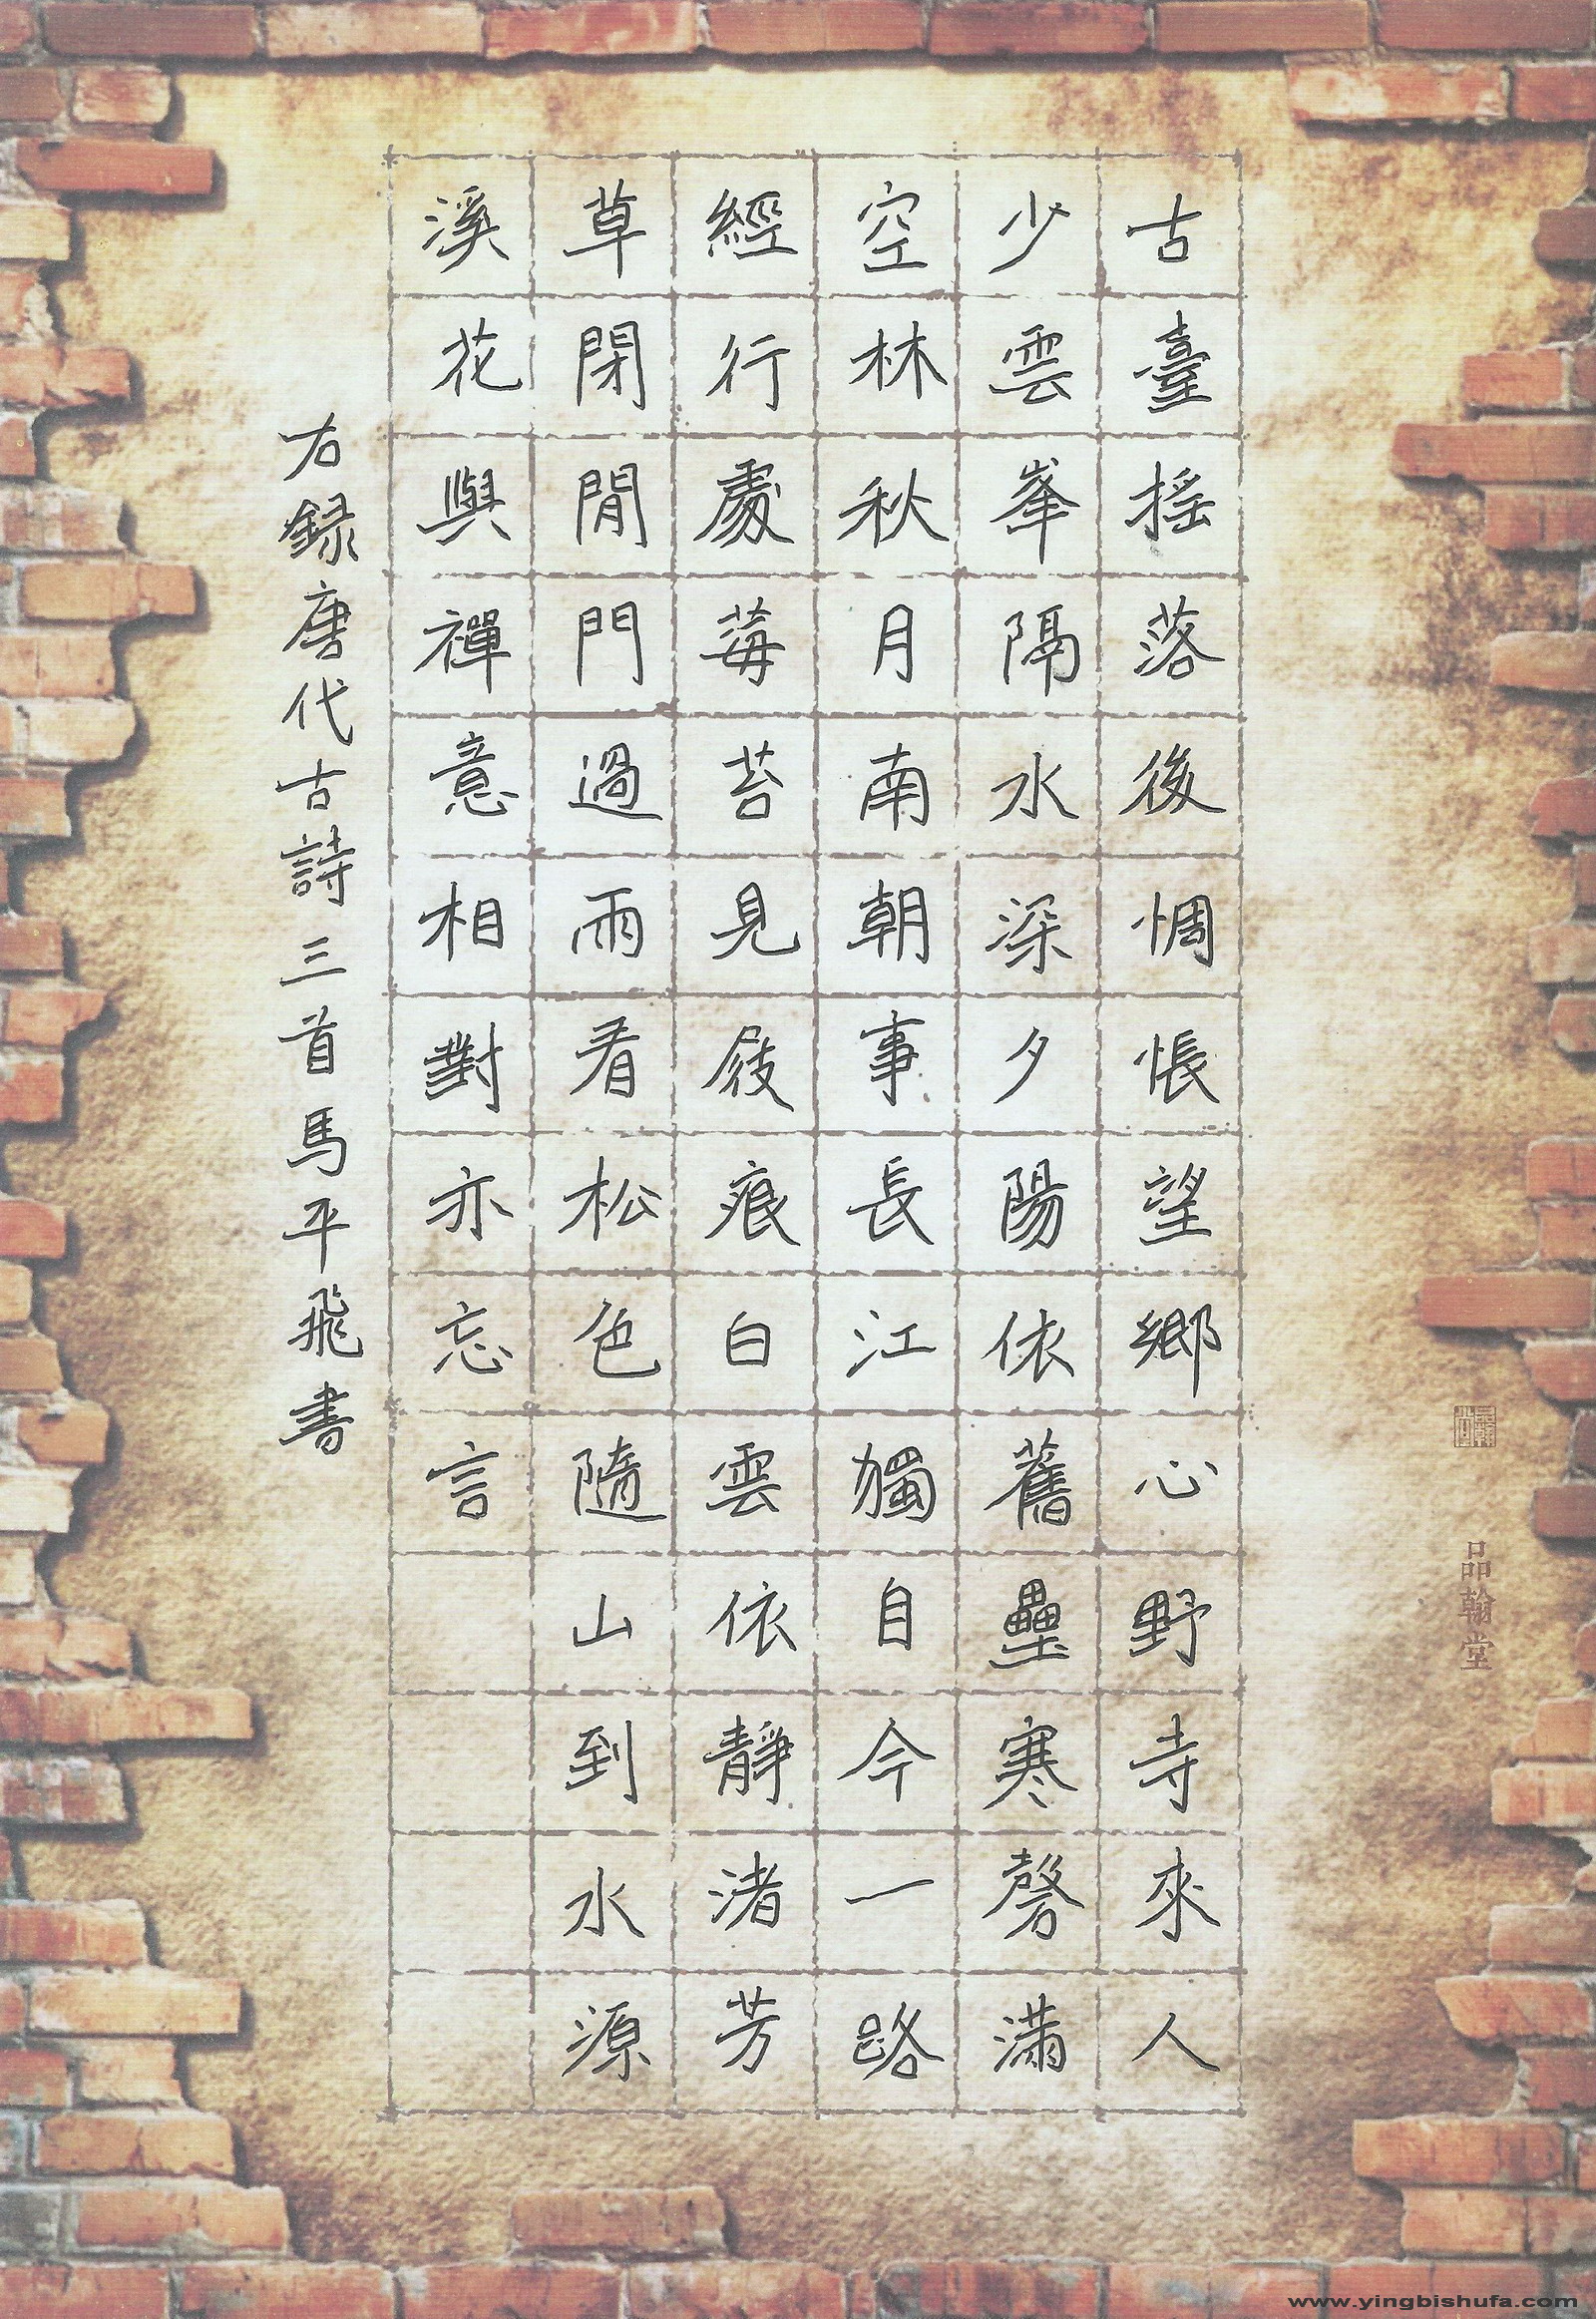 古臺摇落後惆悵望鄉心野寺來人
少雲峯隔水深夕陽依舊壘寒磬滿
空林秋月南朝事長江獨自今一路
經行處莓苔見屐痕白雲依靜渚芳
草閉閒門過雨看松色隨山到水源
溪花與禪意相對亦忘言
右録唐代古詩三首馬平飛書
品翰堂
www.yingbishufa.com